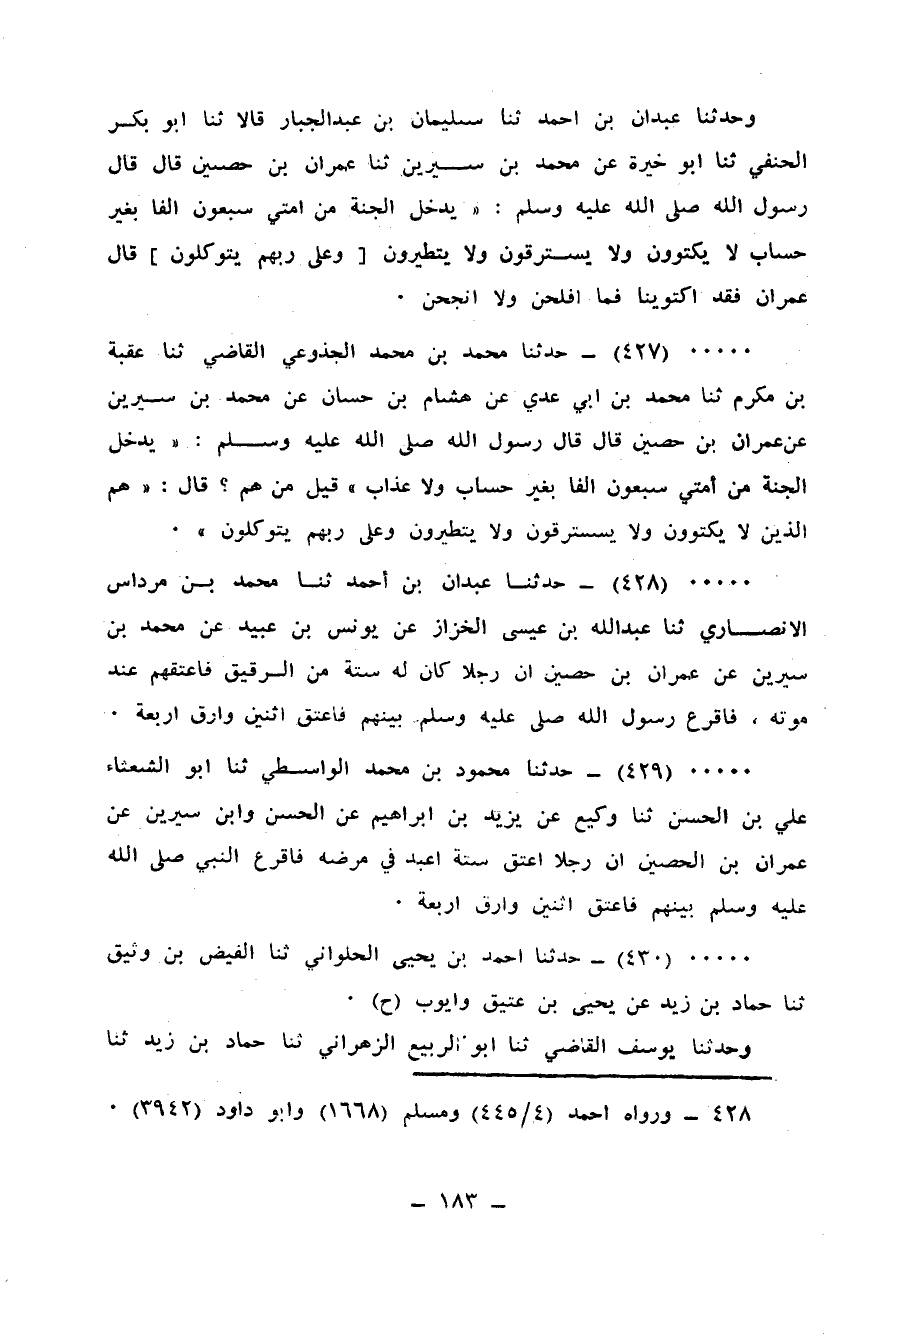 وحدثنا عبدان بن احمد ثنا سليمان بن عبدالجبار قالا ثنا ابو بكر
الحنفي ثنا ابو خيرة عن محمد بن سيرين ثنا عمران بن حصين قال قال
رسول الله صلى الله عليه وسلم : « يدخل الجنة من امتي سبعون الفا بغير
حساب لا يكتوون ولا يسترقون ولا يتطيرون [ وعلى ربهم يتوكلون ] قال
عمران فقد اكتوينا فما افلحن ولا انجحن ٠
٠٠٠٠٠ (٤٢٧) ــ حدثنا محمد بن محمد الجذوعي القاضي ثنا عقبة
بن مكرم ثنا محمد بن ابي عدي عن هشام بن حسان عن محمد بن سيرين
عن عمران بن حصين قال قال رسول الله صلى الله عليه وسلم : « يدخل
الجنة من أمتي سبعون الفا بغير حساب ولا عذاب » قيل من هم ؟ قال : « هم
الذين لا يكتوون ولا يسترقون ولا يتطيرون وعلى ربهم يتوكلون » ٠
٠٠٠٠٠ (٤٢٨) ــ حدثنا عبدان بن أحمد ثنا محمد بن مرداس
الانصاري ثنا عبدالله بن عيسى الخزاز عن يونس بن عبيد عن محمد بن
سيرين عن عمران بن حصين ان رجلا كان له ستة من الرقيق فاعتقهم عند
موته ، فاقرع رسول الله صلى عليه وسلم بينهم فاعتق اثنين وارق اربعة ٠
٠٠٠٠٠ (٤٢٩) ــ حدثنا محمود بن محمد الواسطي ثنا ابو الشعثاء
علي بن الحسن ثنا وكيع عن يزيد بن ابراهيم عن الحسن وابن سيرين عن
عمران بن الحصين ان رجلا اعتق ستة اعبد في مرضه فاقرع النبي صلى الله
عليه وسلم بينهم فاعتق اثنين وارق اربعة ٠
٠٠٠٠٠ (٤٣٠) ــ حدثنا احمد بن يحيى الحلواني ثنا الفيض بن وثيق
ثنا حماد بن زيد عن يحيى بن عتيق وايوب (ح) ٠
وحدثنا يوسف القاضي ثنا ابو الربيع الزهراني ثنا حماد بن زيد ثنا
٤٢٨ ــ ورواه احمد (٤/٤٤٥) ومسلم (١٦٦٨) وابو داود (٣٩٤٢) ٠
ــ ١٨٣ ــ